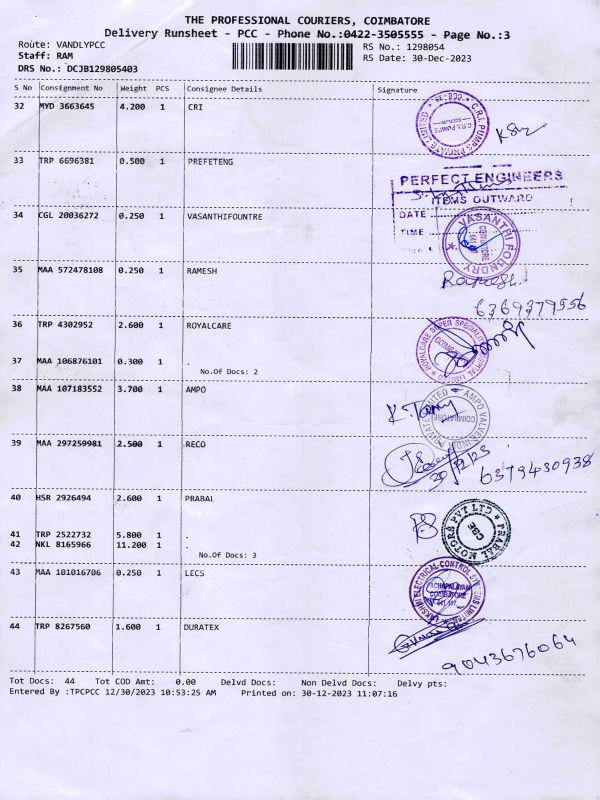 THE PROFESSIONAL COURIERS, COIMBATORE
Delivery Runsheet - PCC - Phone No.:0422-3505555 - Page No.:3
Route: VANDLYPCC RS No.: 1298054
Staff: RAM RS Date: 30-Dec-2023
DRS No.: DCJB129805403
S No Consignment No Weight PCS Consignee Details Signature
32 MYD 3663645 4.200 1 CRI
C.R.I. PUMPS PRIVATE LIMITED
33 TRP 6696381 0.500 1 PREFETENG
PERFECT ENGINEERS
ITEMS OUTWARD
DATE
TIME
34 CGL 20036272 0.250 1 VASANTHIFOUNTRE
VASANTHI FOUNDRY
35 MAA 572478108 0.250 1 RAMESH
Ramesh
6369379556
36 TRP 4302952 2.600 1 ROYALCARE
ROYALCARE SUPER SPECIALITY HOSPITAL LIMITED
37 MAA 106876101 0.300 1 .
No.Of Docs: 2
38 MAA 107183552 3.700 1 AMPO
AMPO VALVES INDIA PRIVATE LIMITED
COIMBATORE
39 MAA 297259981 2.500 1 RECO
30/12/23
6379430938
40 HSR 2926494 2.600 1 PRABAL
PRABAL MOTORS PVT LTD
CBE
41 TRP 2522732 5.800 1 .
42 NKL 8165966 11.200 1 .
No.Of Docs: 3
43 MAA 101016706 0.250 1 LECS
LAKSHMI ELECTRICAL CONTROL SYSTEMS LIMITED
COIMBATORE
44 TRP 8267560 1.600 1 DURATEX
9043676064
Tot Docs: 44 Tot COD Amt: 0.00 Delvd Docs: Non Delvd Docs: Delvy pts:
Entered By :TPCPCC 12/30/2023 10:53:25 AM Printed on: 30-12-2023 11:07:16